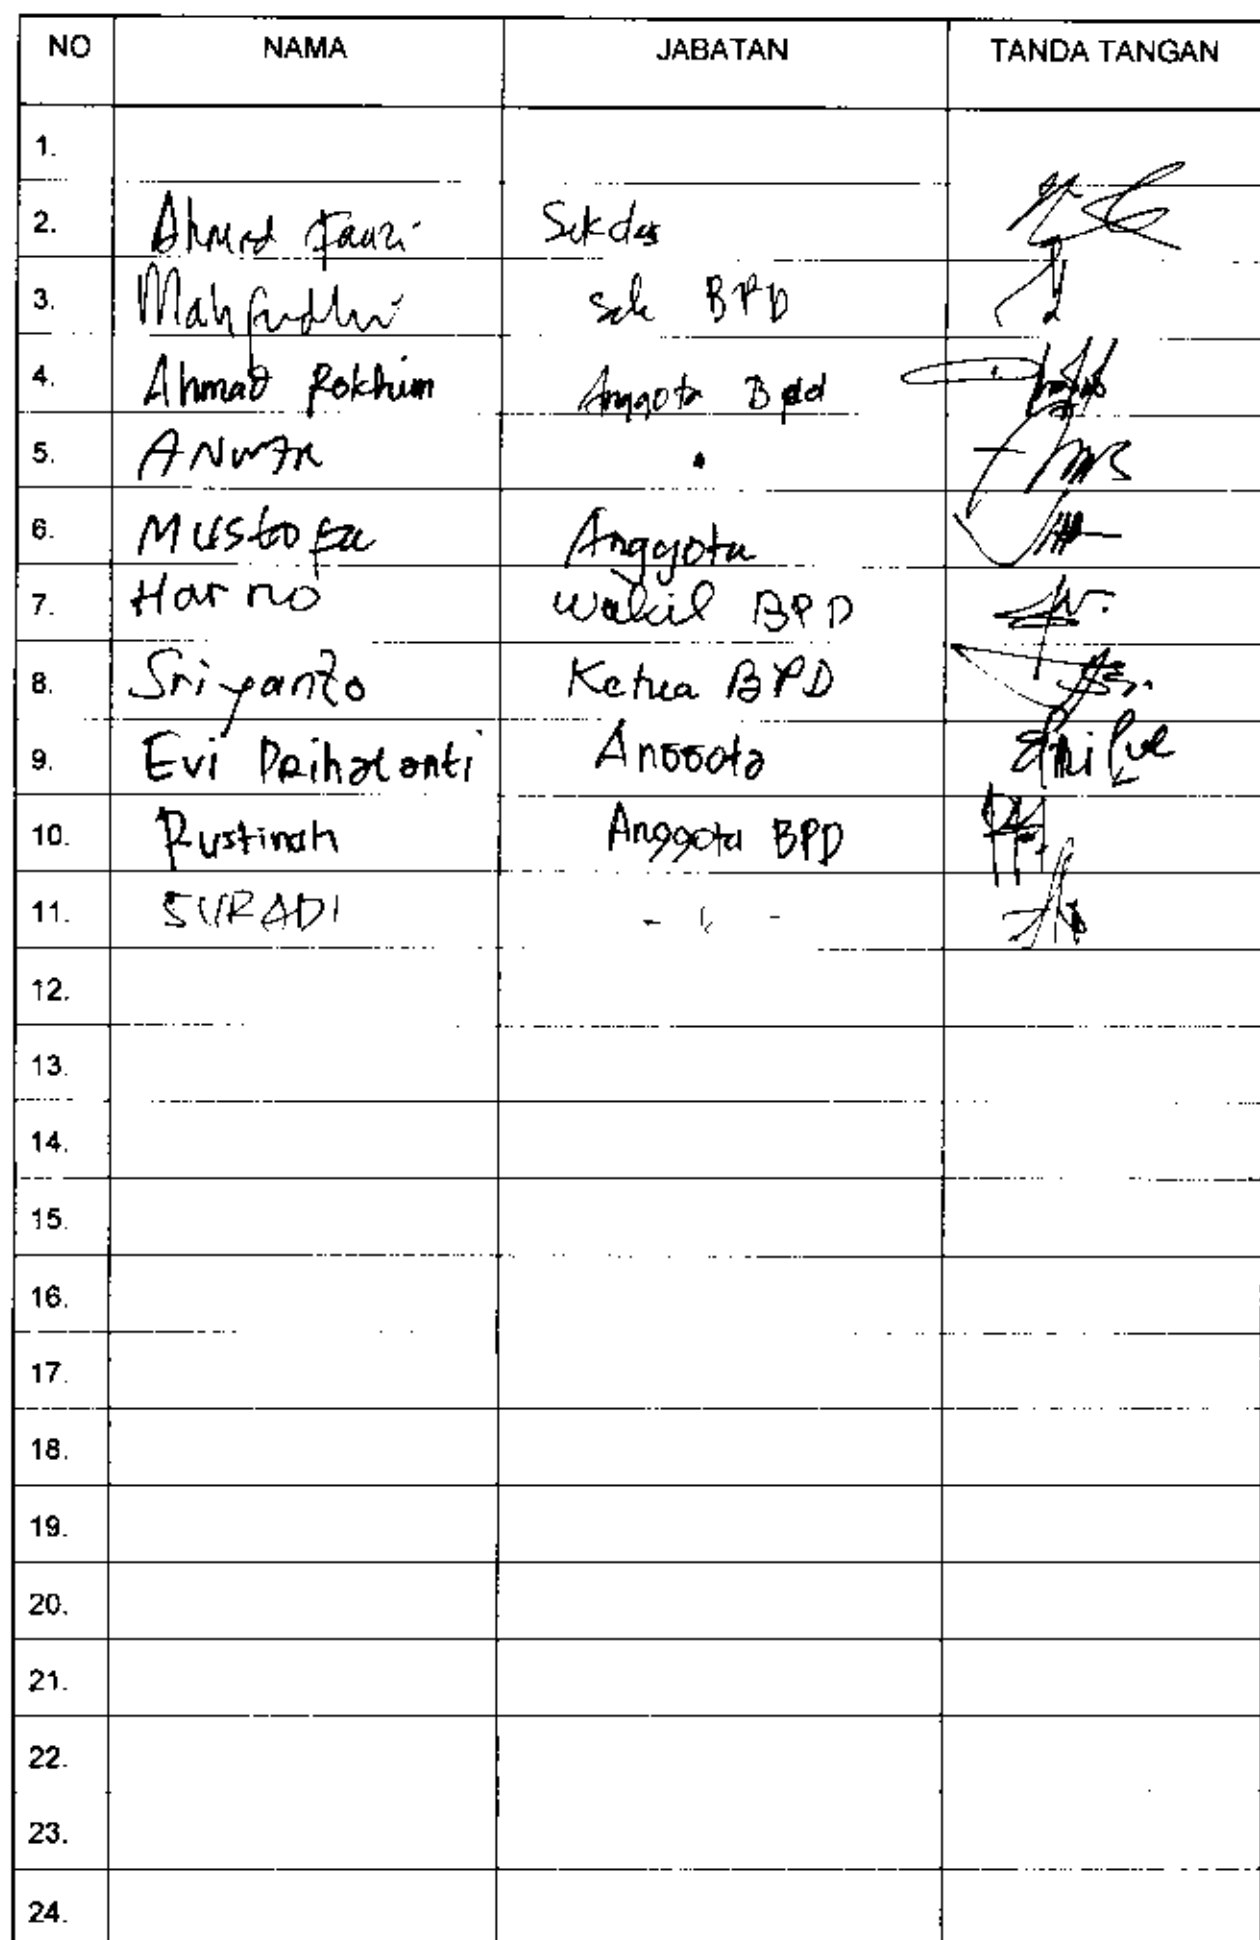 NO NAMA JABATAN TANDA TANGAN
1.
2. Ahmad Fauzi Sekdes
3. Mahfudhi Sek BPD
4. Ahmad Rokhim Anggota Bpd
5.
6. Mustofa Anggota
7. Harno Wakil BPD
8. Sriyanto Ketua BPD
9. Evi Prihatanti Anggota
10. Rustinah Anggota BPD
11. SURADI - " -
12.
13.
14.
15.
16.
17.
18.
19.
20.
21.
22.
23.
24.